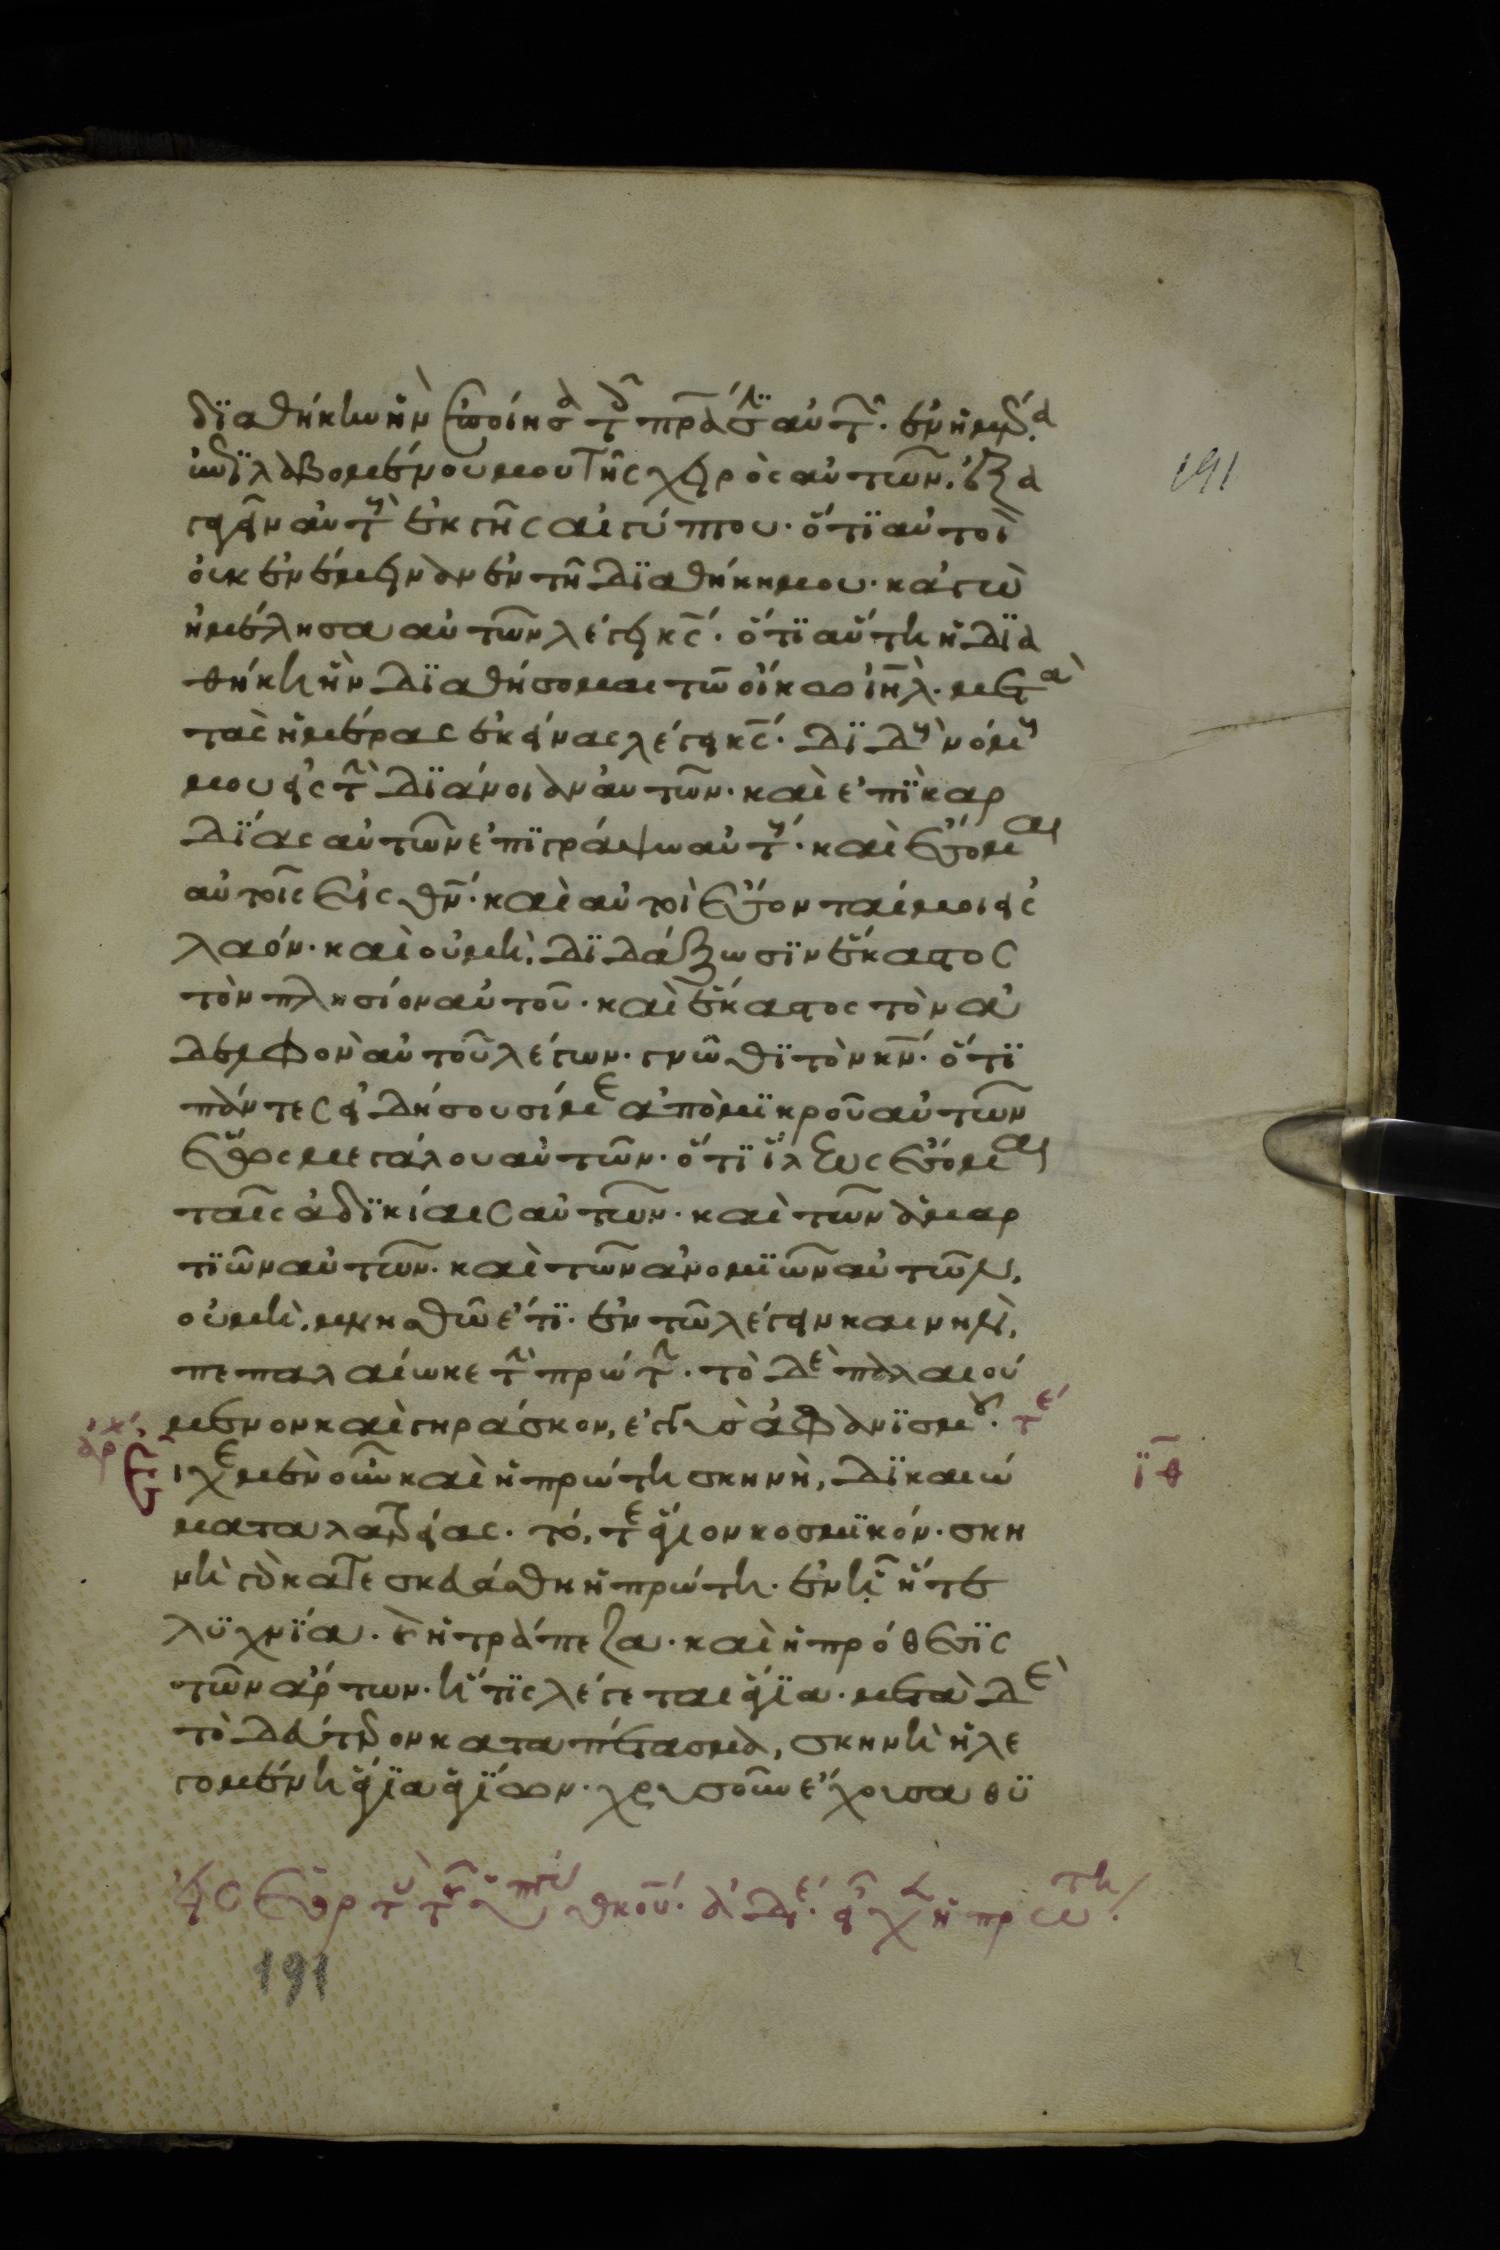 διαθήκην ἣν ἐποίησα τοῖς πρᾶσιν αὐτῶν· ἐν ἡμέρα
ἐπιλαβομένου μου τῆς χειρὸς αὐτῶν, ἐξα
γαγεῖν αὐτοὺς ἐκ γῆς αἰγύπτου· ὅτι αὐτοὶ
οὐκ ἐνέμειναν ἐν τῆ διαθήκη μου· κἀγὼ
ἠμέλησα αὐτῶν λέγει κς· ὅτι αὕτη ἡ δια
θήκη ἣν διαθήσομαι τῶ οἴκω ιηλ· μετὰ
τὰς ἡμέρας ἐκείνας λέγει κς· διδοὺς νόμους
μου εἰς τὴν διάνοιαν αὐτῶν· καὶ ἐπὶ καρ
δίας αὐτῶν ἐπιγράψω αὐτούς· καὶ ἔσομαι
αὐτοῖς εἰς θν· καὶ αὐτοὶ ἔσονταί μοι εἰς
λαόν· καὶ οὐ μὴ διδάξωσιν ἕκαστος
τὸν πλησίον αὐτοῦ· καὶ ἕκαστος τὸν ἀ
δελφὸν αὐτοῦ λέγων· γνῶθι τὸν κν· ὅτι
πάντες εἰδήσουσί με ἀπὸ μικροῦ αὐτῶν
ἕως μεγάλου αὐτῶν· ὅτι ἵλεως ἔσομαι
ταῖς ἀδικίαις αὐτῶν· καὶ τῶν ἁμαρ
τιῶν αὐτῶν· καὶ τῶν ἀνομιῶν αὐτῶν,
οὐ μὴ μνησθῶ ἔτι· ἐν τῶ λέγειν καινὴν,
πεπαλαίωκε τὴν πρώτην· τὸ δὲ παλαιού
μενον καὶ γηράσκον, ἐγγὺς ἀφανισμοῦ· τε
ἀρχ
Εἶχε μὲν οὖν καὶ ἡ πρώτη σκηνὴ, δικαιώ
ιθ
ματα λατρείας· τό, τε ἅγιον κοσμικόν· σκη
νὴ γὰρ κατεσκευάσθη ἡ πρώτη· ἐν ἧ ἥ τε
λυχνία· καὶ ἡ τράπεζα· καὶ ἡ πρόθεσις
τῶν ἄρτων· ἥτις λέγεται ἅγια· μετὰ δὲ
τὸ δεύτερον καταπέτασμα, σκηνὴ ἡ λε
γομένη ἅγια ἁγίων· χρυσοῦν ἔχουσα θυ
191
191